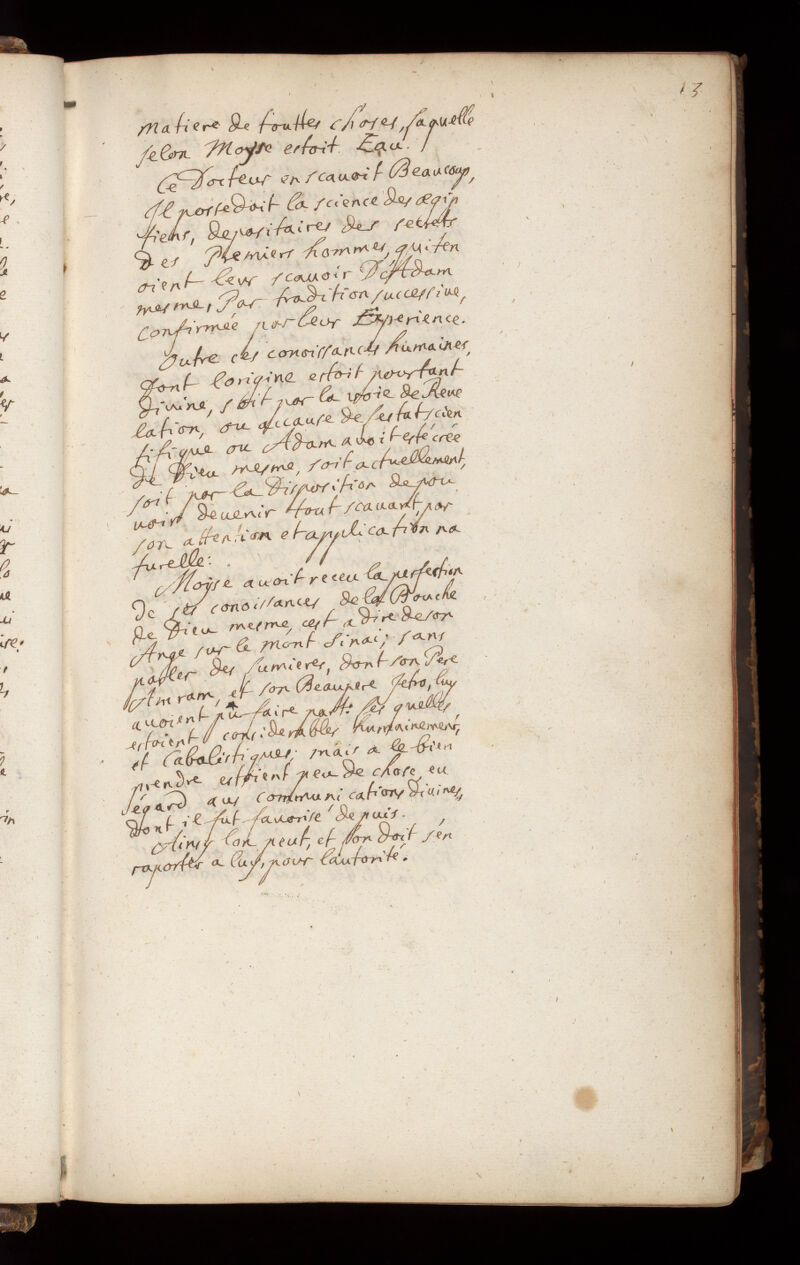 13
matiere de touttes choses, laquelle
selon Moyse estoit Eau.
Ce Docteur en scavoit Beaucoup,
Il possedoit la science des ægip
tiens, depositaires des secrets
Des Premiers hommes, qui ten
oient leur scavoir D'Adam
mesme, Par tradition successive,
confirmée par leur Experience.
Outre ces conoissances humaines,
dont lorigine estoit pourtant
divine, soit par la voie de Reve
lation, ou accause de lestat scien
tifique ou Adam avoit esté crée
de Dieu mesme, soit actuellement,
soit par la Disposition de pou
voir devenir tout scavant, par
son attention et application na
turelle:
Moyse avoit receu la perfection
De ses conoissances de la Bouche
de Dieu mesme, cest a dire de son
Ange sur le mont Sinai; sans
parler des lumieres, dont son Pere
Amram, et son Beaupere Jetro, luy
avoient pû faire part: lesquelles
estoient considerables humainement,
et Cabalistiques; mais a le bien
prendre estoient peu de chose, eu
égard aus communications divines,
dont il fut favorisé depuis.
Ainsy lon peut, et lon doit sen
raporter a luy, pour lautorité.